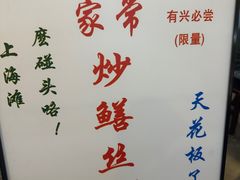 家常
炒鳝丝
有兴必尝
(限量)
天花板了
麽碰头咯!
上海滩